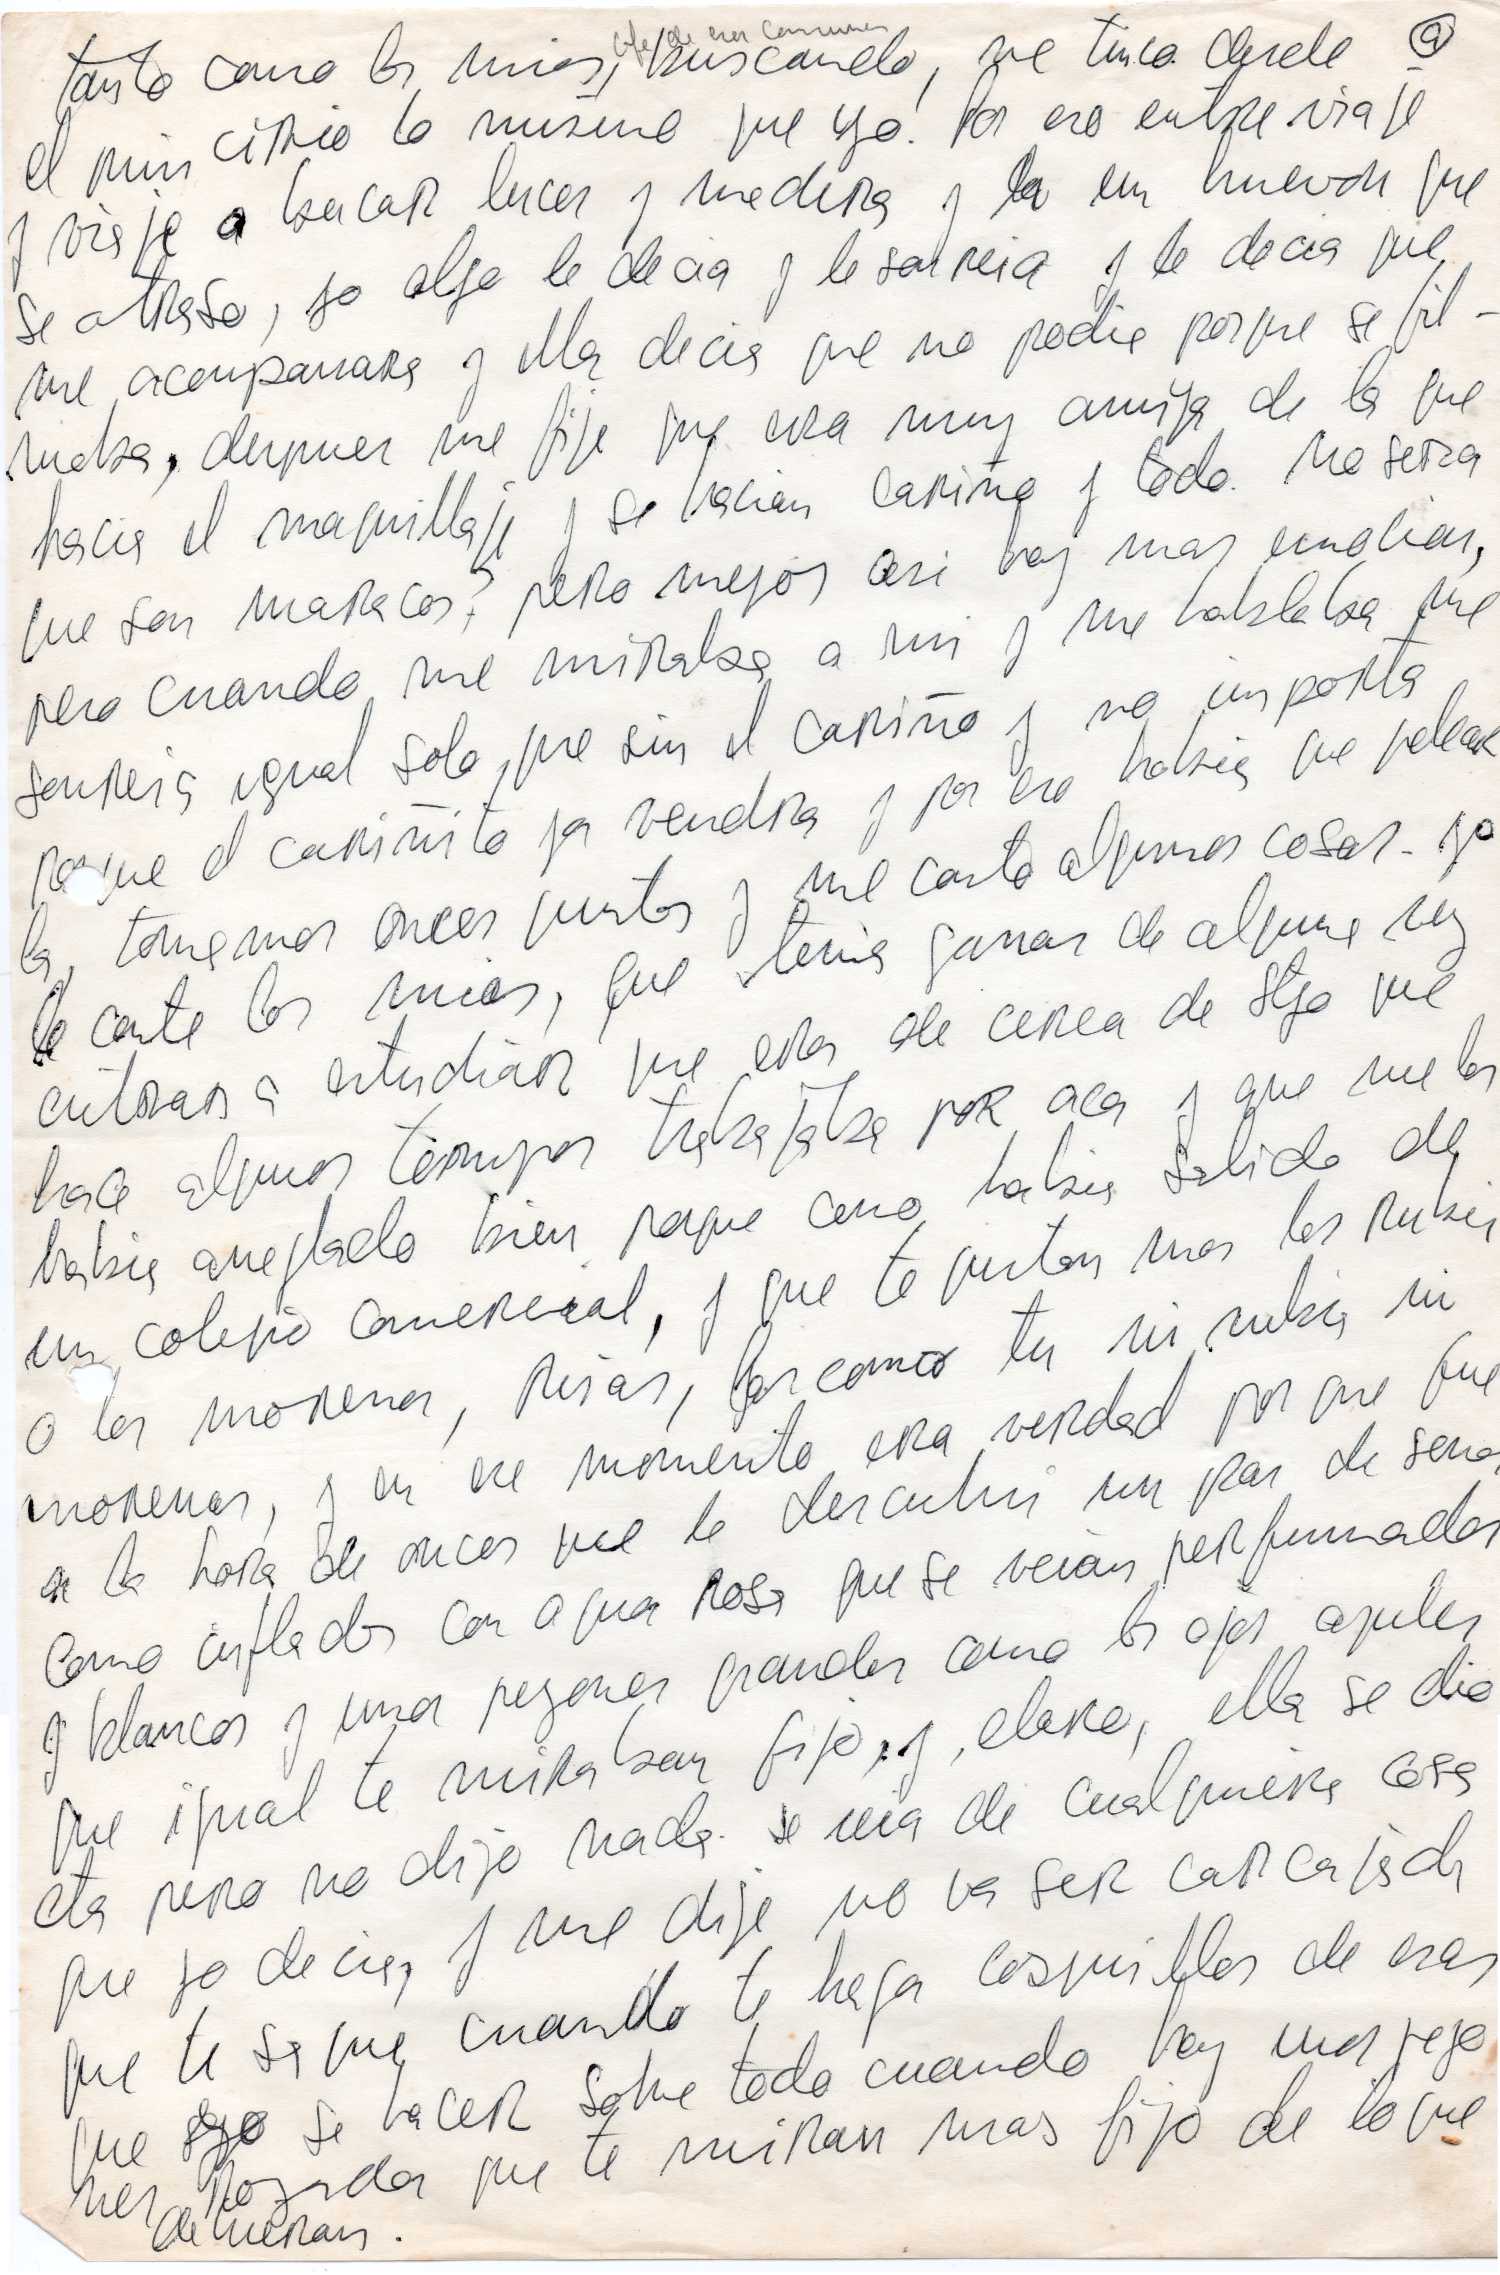 9
tanto como los mios, buscando, me tinca desde
el principio lo mismo que yo. Por eso entre viaje
y viaje a buscar luces y madera y la un huevon que
se atraso, yo algo le decia y le sonreia y le decia que
me acompanara y ella decia que no podia porque se fil-
maba, despues me fije que era muy amiga de la que
hacia el maquillaje y se hacian cariño y todo. No sera
que son maracos? pero mejor asi hay mas emocion,
pero cuando me miraba a mi y me hablaba me
sonreia igual solo que sin el cariño y no importa
porque el cariñito ya vendra y por eso habia que pelear
la, tomamos onces juntos y me conto algunas cosas - yo
le conte los mios, que tenia ganas de alguna vez
entrar a estudiar que era de cerca de Stgo que
hace algunos tiempos trabajaba por aca y que me las
habia arreglado bien porque como habia salido de
un colegio comercial, y que te gustan mas las rubias
o las morenas, risas, las como tu ni rubia ni
morenas, y en ese momento era verdad por que fue
a la hora de onces que le descubri un par de senos
como inflados con agua rosa que se veian perfumados
y blancos y unos pezones grandes como los ojos azules
que igual te miraban fijo, y, claro, ella se dio
cta pero no dijo nada. se reia de cualquiera cosa
que yo decia, y me dije no va ser carcajada
que te saque cuando te haga cosquillas de esas
que yo se hacer sobre todo cuando hay unos pezo
nes rosados que te miran mas fijo de lo que
debieran.